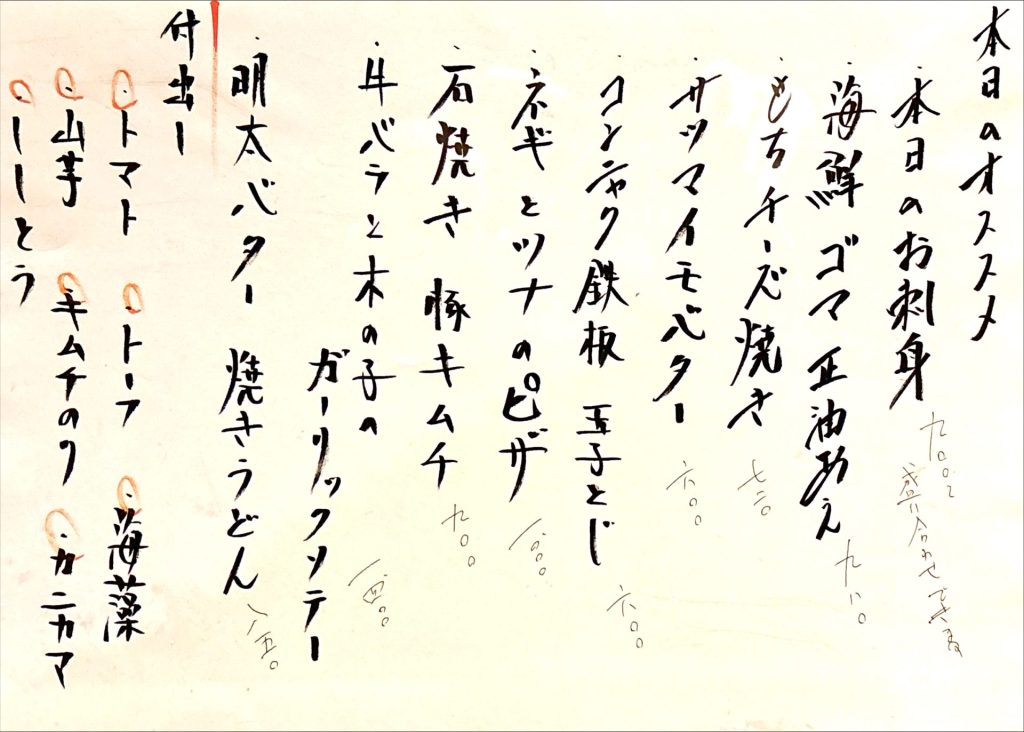 本日のオススメ
・本日のお刺身 九〇〇〜
盛り合わせできます
・海鮮ゴマ正油あえ 九八〇
・もちチーズ焼き 七二〇
・サツマイモバター 六〇〇
・コンニャク鉄板 玉子とじ 六〇〇
・ネギとツナのピザ
・石焼き 豚キムチ 九〇〇
・牛バラと木の子の
ガーリックソテー
・明太バター 焼きうどん
付出し
・トマト ・トーフ ・海藻
・山芋 ・キムチのり ・カニカマ
・ししとう